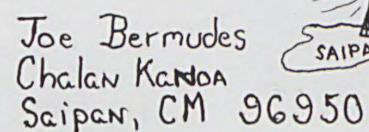 Joe Bermudes
Chalan Kanoa
Saipan, CM 96950